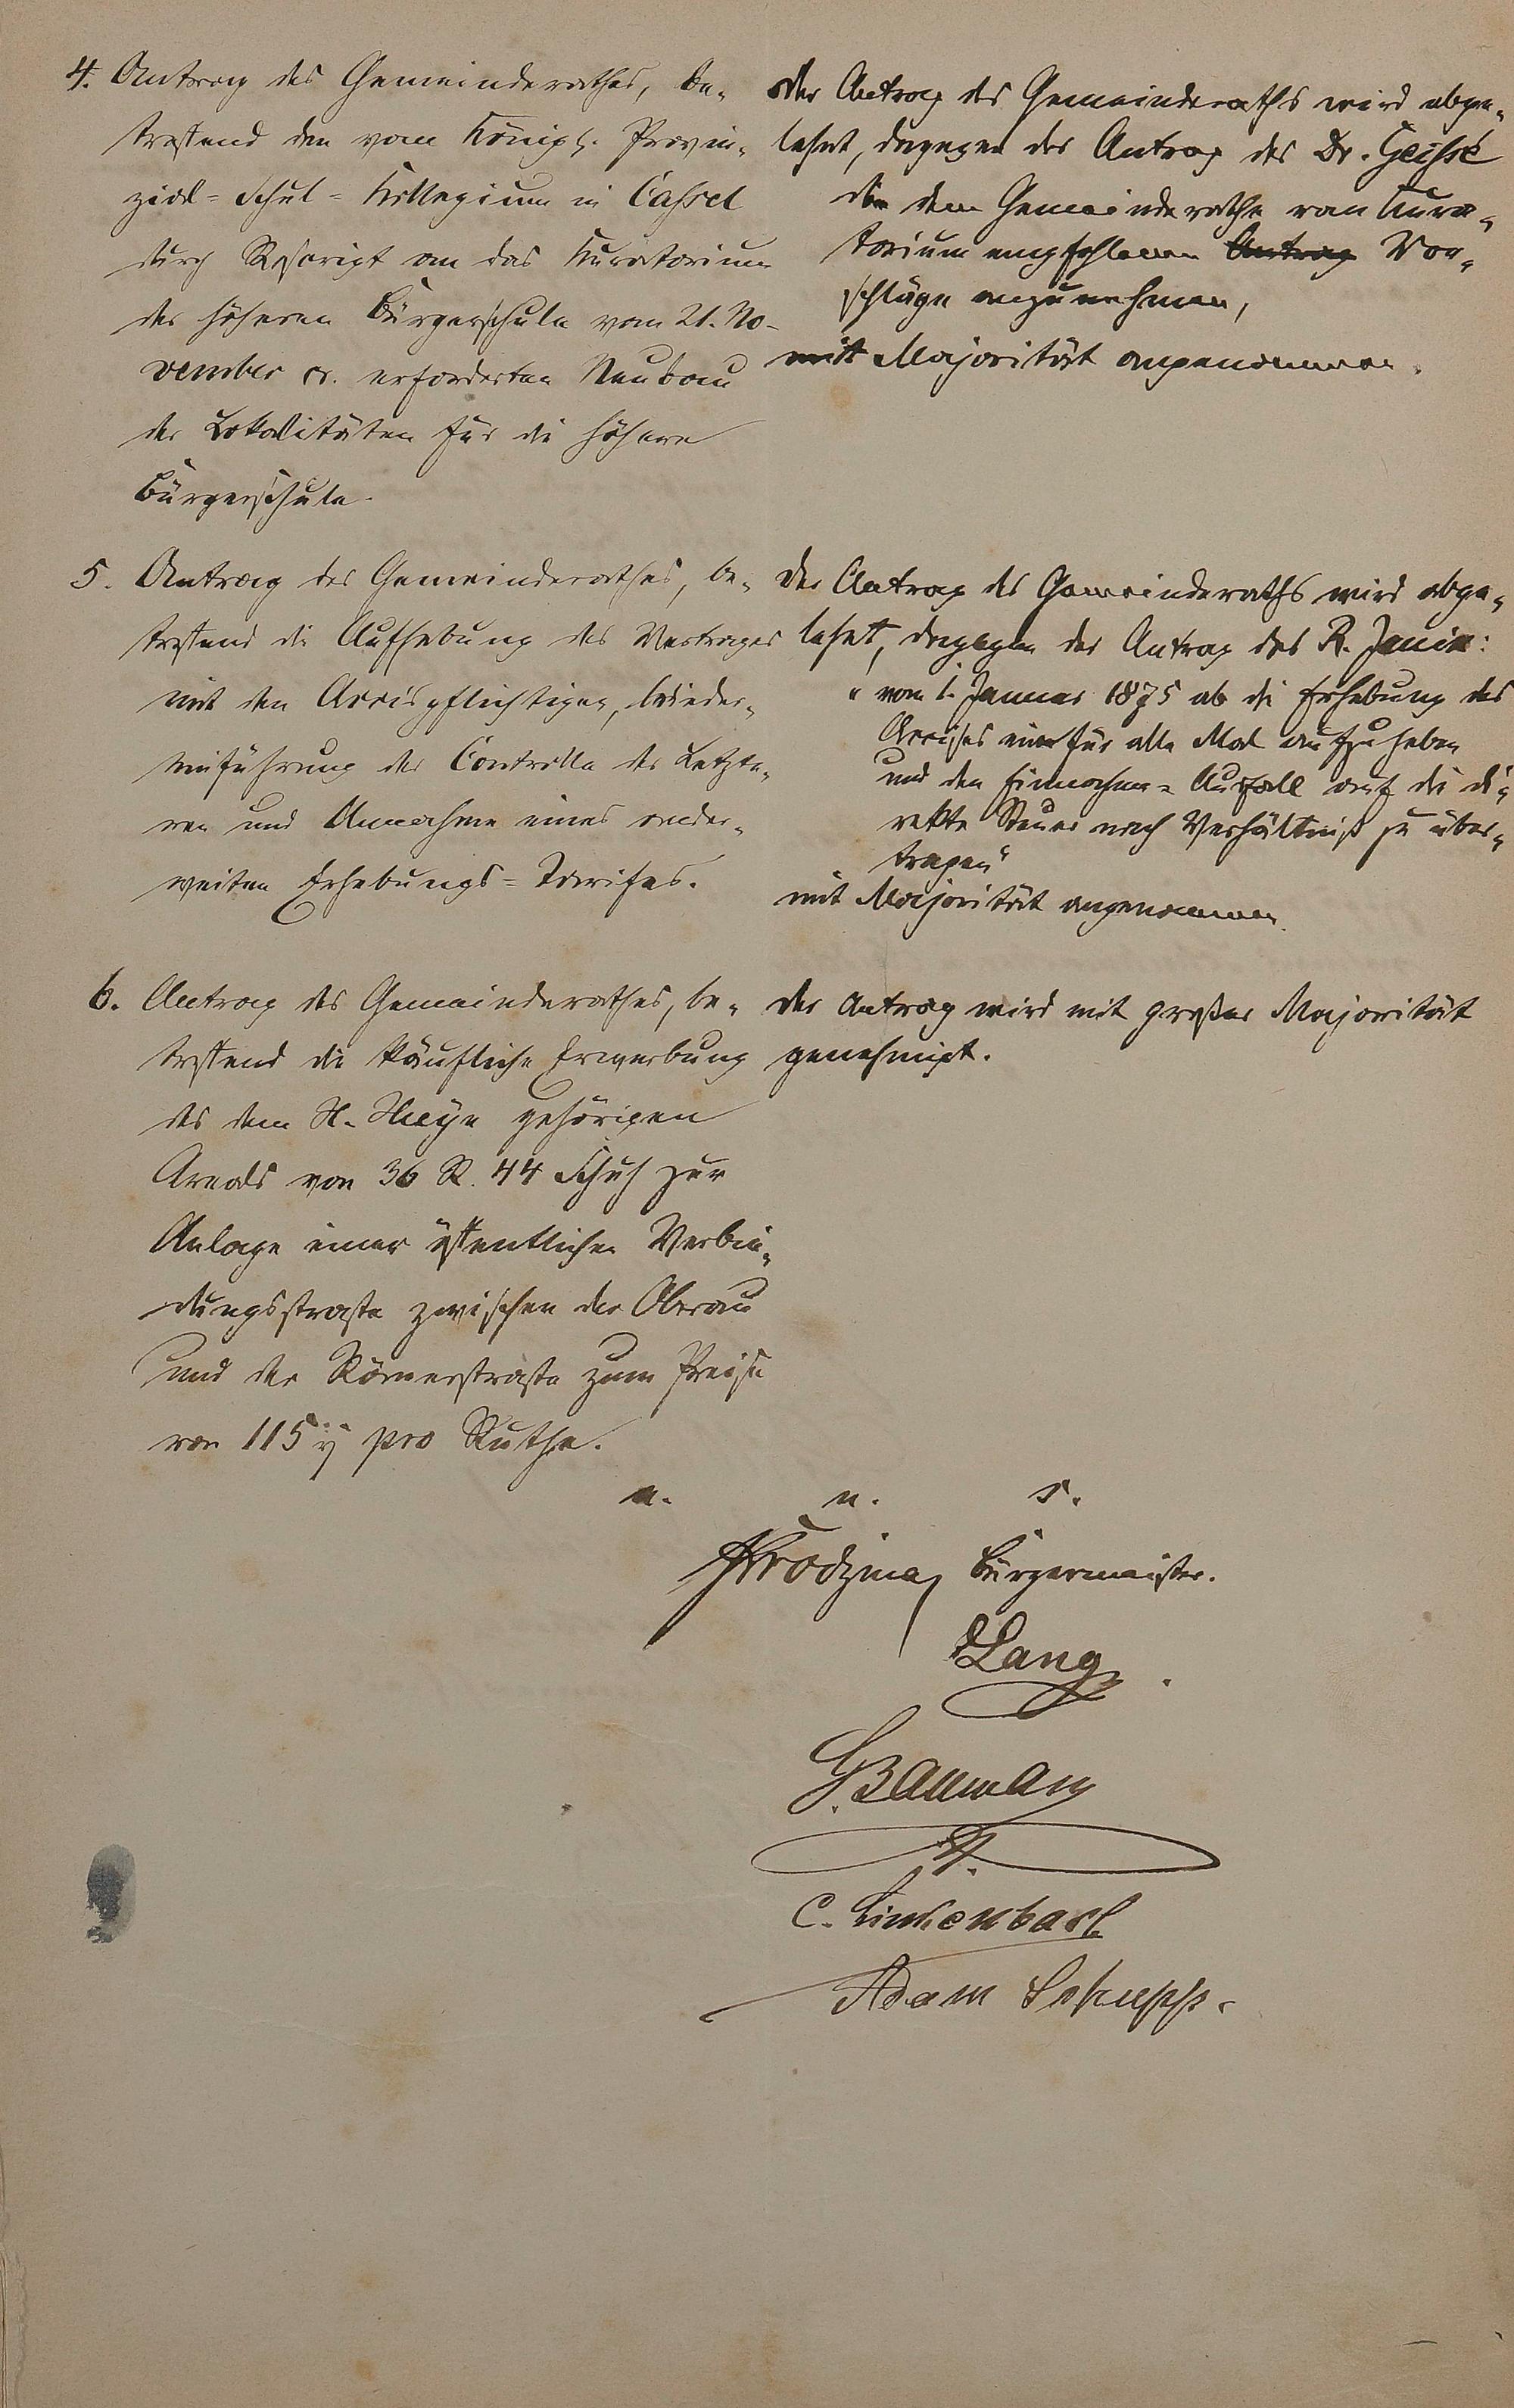 4. Antrag des Gemeinderathes, be-
treffend den vom Königl. Provin-
zial-Schul-Kollegium in Cassel
durch Rescript an das Kuratorium
der höheren Bürgerschule vom 21. No-
vember cr. erforderten Neubau
der Lokalitäten für die höhere
Bürgerschule.
Der Antrag des Gemeinderaths wird abge-
lehnt, dagegen der Antrag des Dr. Geisse
die dem Gemeinderathe vom Kura-
torium empfohlenen Antrag Vor-
schläge anzunehmen,
mit Majorität angenommen.
5. Antrag des Gemeinderathes, be-
treffend die Aufhebung des Vertrages
mit den Accispflichtigen, Wieder-
einführung der Controlle der Letzte-
ren und Annahme eines ander-
weiten Erhebungs-Tarifes.
Der Antrag des Gemeinderaths wird abge-
lehnt, dagegen der Antrag des R. Janin:
"vom 1. Januar 1875 ab die Erhebung des
Accises ein für alle Mal aufzuheben
und den Einnahme-Ausfall auf die di-
rekte Steuer nach Verhältniß zu über-
tragen"
mit Majorität angenommen.
6. Antrag des Gemeinderathes, be-
treffend die käufliche Erwerbung
des dem H. gehörigen
Areals von 36 R. 44 Schuh zur
Anlage einer öffentlichen Verbin-
dungsstraße zwischen der Oberau
und der Römerstraße zum Preise
von 115 pro Ruthe.
Der Antrag wird mit großer Majorität
genehmigt.
u. u. s.
Bürgermeister.
Lang
G. Baumann
C. Linkenbach
Adam Schupp.